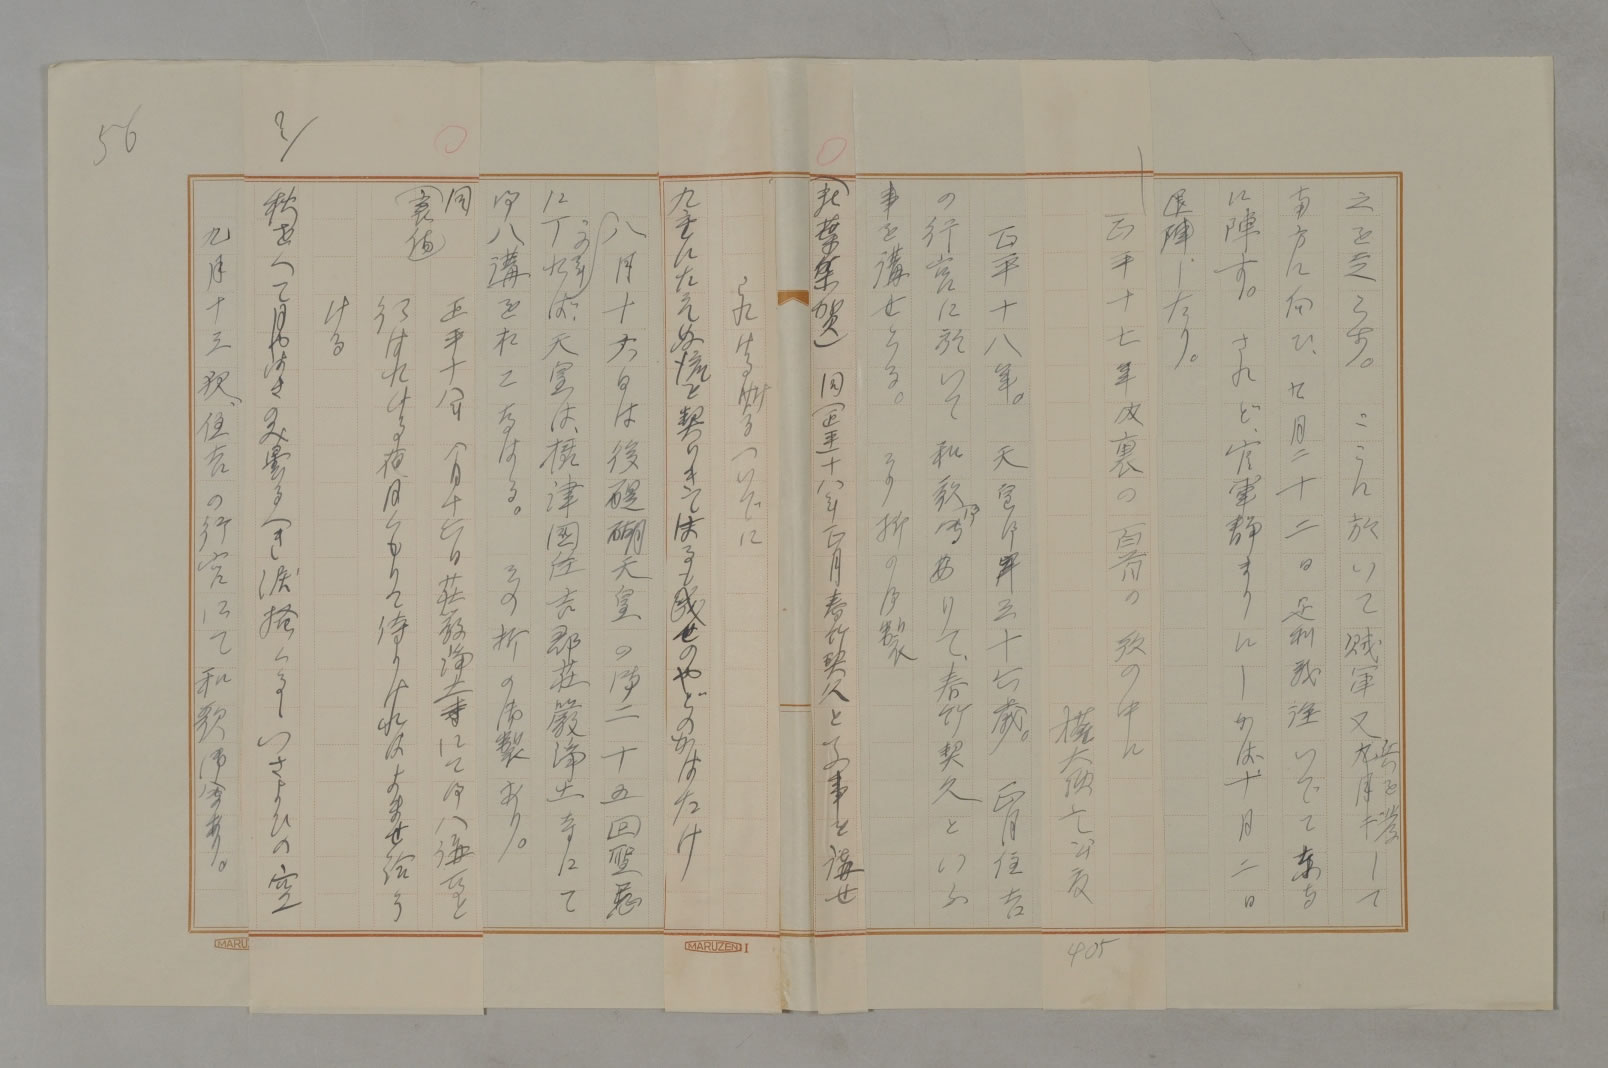 之を走らす。こゝに於いて賊軍又兵を發して
南方に向ひ、九月二十二日足利義詮いでて東寺
に陣す。されど、官軍靜まりにしかば十月二日
退陣したり。
正平十七年内裏の百首の歌の中に
405
正平十八年。天皇御年三十七歳。正月住吉
の行宮に於いて和歌御會ありて、春竹契久といふ
事を講せらる。その折の御製
(新葉集賀) 同(正平)十八年正月春竹契久と云事を講せ
られける時るついでに
九重にたえぬ流を契りきてはるも
八月十六日は後醍醐天皇の御二十五回聖忌
に丁れば、天皇は、攝津國住吉郡莊嚴淨土寺にて
御八講をおこなはる。その折の御製あり。
同(哀傷) 正平十八年八月十六日莊嚴淨土寺にて御八講など
行はれける夜月くもりて侍りければよませ給う
ける
秋をへて月やはさのみ曇るへき涙掻くらしいさよひの空
九月十三夜、住吉の行宮にて和歌御會あり。
56
MARUZEN I